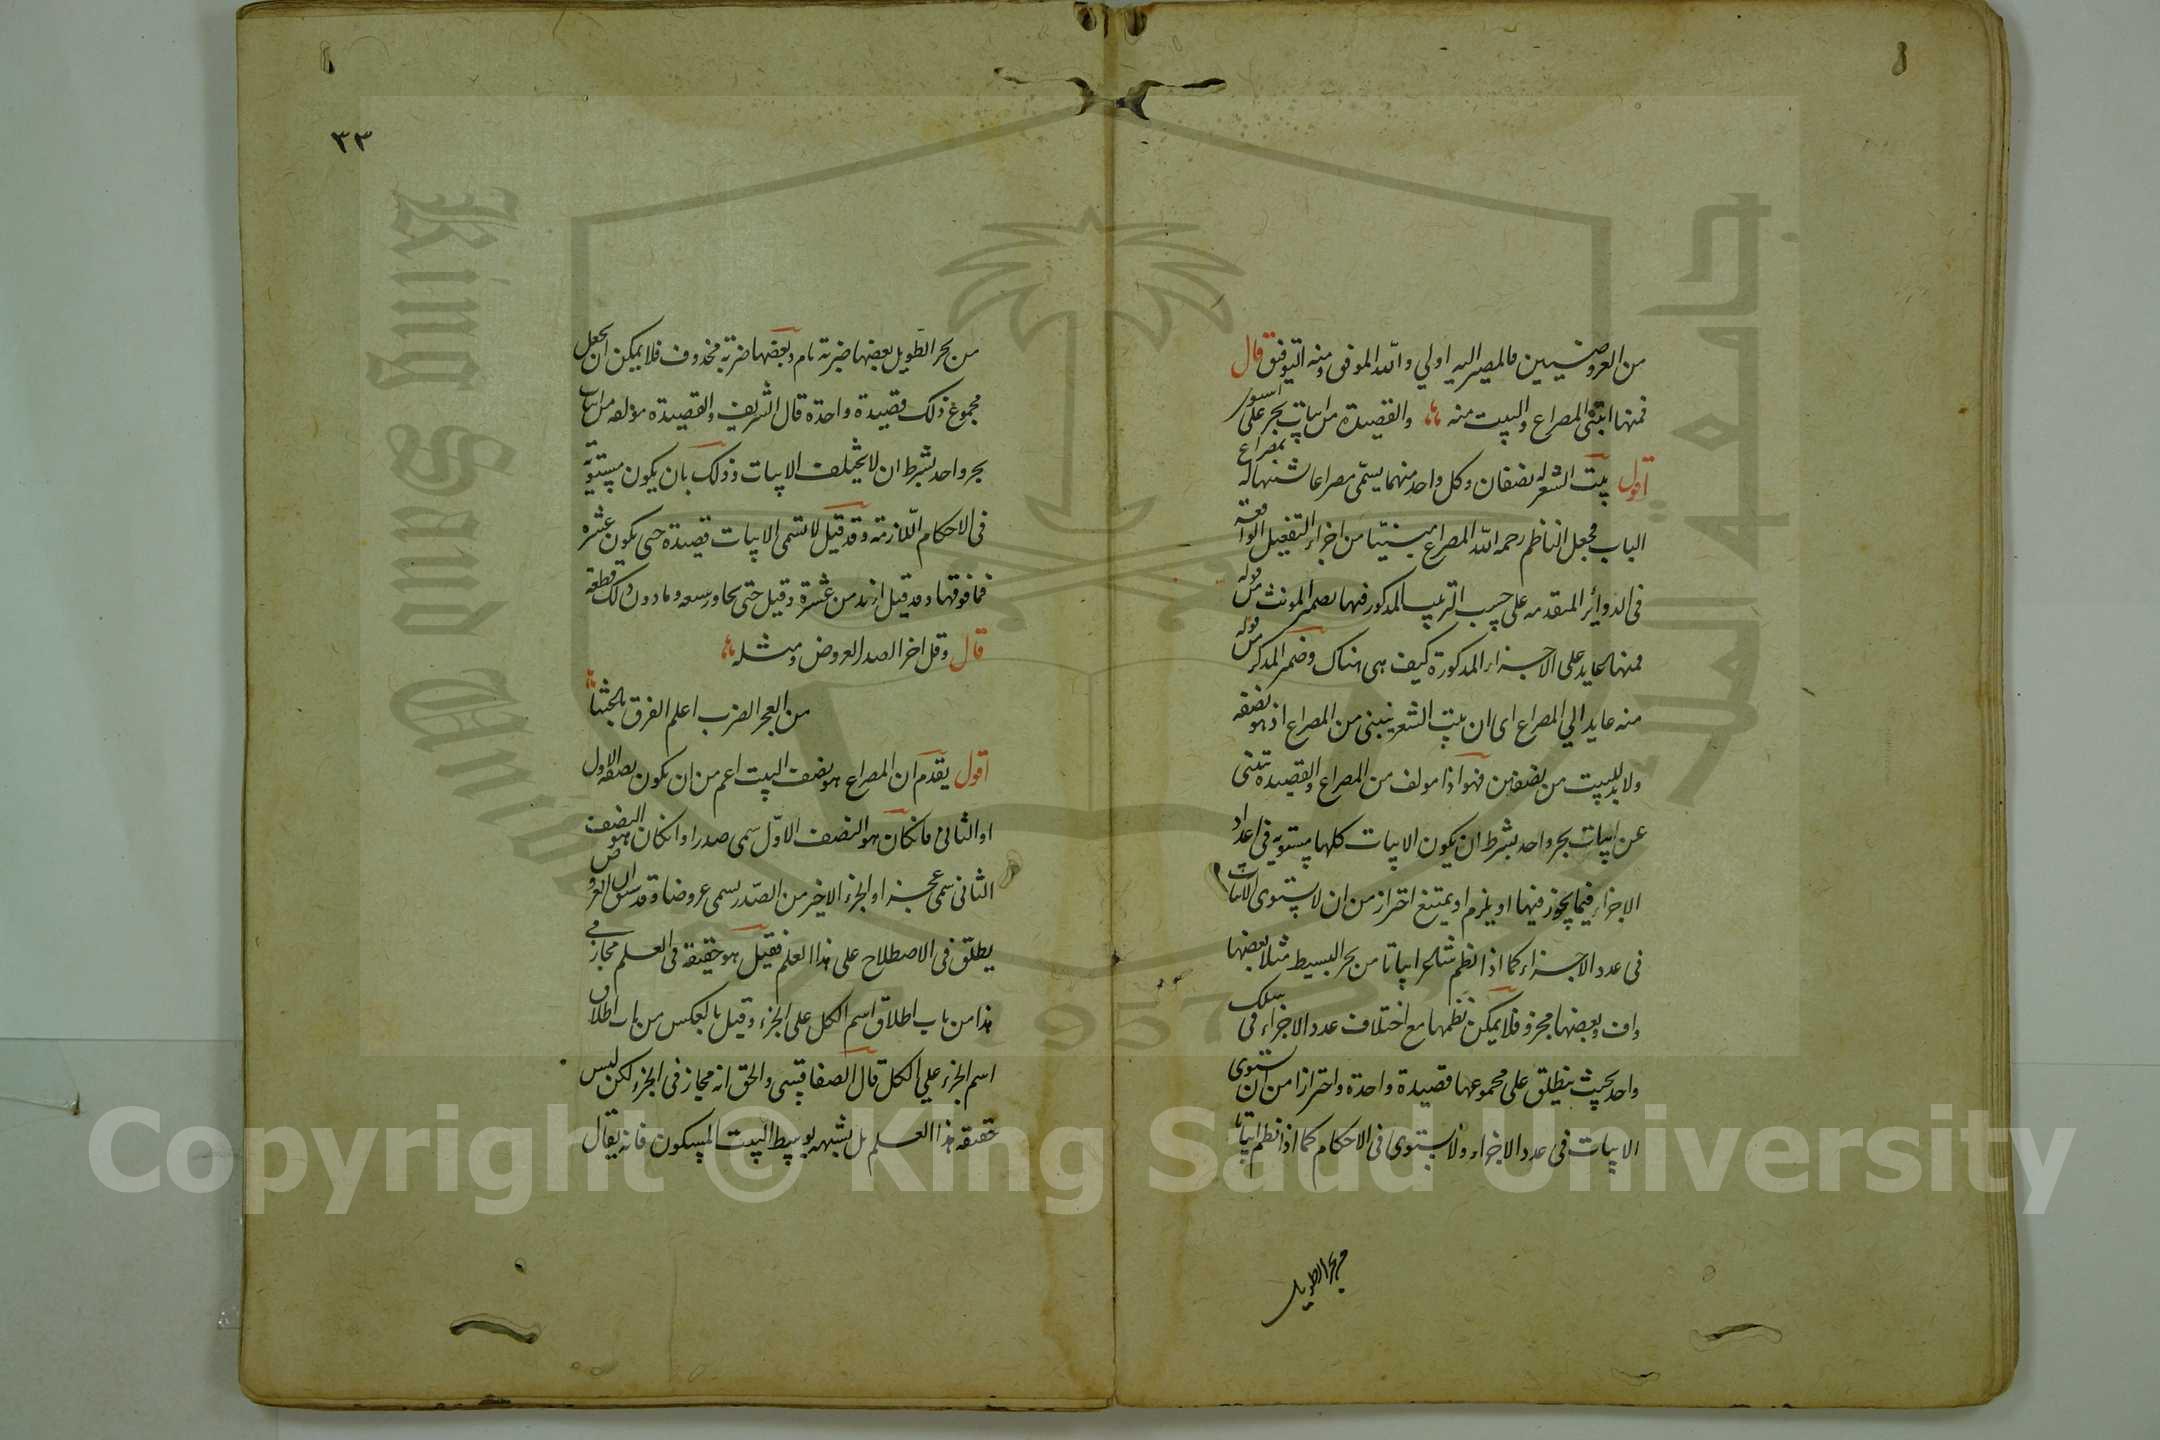 من العروضيين فالمصير اليه اولي والله الموفق ومنه التوفيق قال
فمنها ابتنى المصراع والبيت منه والقصيدة من ابيات بحر على استوى
اقول بيت الشعر له نصفان وكل واحد منهما يسمى مصراعا شبها له بمصراع
الباب فجعل الناظم رحمه الله المصراع مبنيا من اجزاء التفعيل الواقعة
فى الدوائر المتقدمه على حسب الترتيب المذكور فيها بضمير المونث من قوله
فمنها عايد على الاجزاء المذكورة كيف هى هناك وضمير المذكر من قوله
منه عايد الي المصراع اى ان بيت الشعر ينبنى من المصراع اذ هو نصفه
ولا بد للبيت من نصفين فهو اذا مولف من المصراع والقصيدة تبتنى
عن ابيات بحر واحد بشرط ان يكون الابيات كلها مستويه فى اعداد
الاجزاء فيما يجوز فيها او يلزم او يمتنع احتراز من ان لا يستوى الابيات
فى عدد الاجزاء كما اذا نظم شاعر ابياتا من بحر البسيط مثلا بعضها
واف وبعضها مجزو فلا يمكن نظمها مع اختلاف عدد الاجزاء فى سلك
واحد بحيث ينطلق على مجموعها قصيدة واحدة واحترازا من ان تستوى
الابيات فى عدد الاجزاء ولا يستوى فى الاحكام كما اذا نظم ابياتا
من بحر الطويل
٣٣
من بحر الطويل بعضها ضربه تام وبعضها ضربه محذوف فلا يمكن ان يجعل
مجموع ذلك قصيدة واحدة قال الشريف والقصيدة مؤلفه من ابيات
بحر واحد بشرط ان لا يختلف الابيات وذلك بان يكون مستويه
فى الاحكام اللازمة وقد قيل لا تسمى الابيات قصيدة حتى يكون عشره
فما فوقها وقد قيل ازيد من عشرة وقيل حتى يجاوز سبعه وما دون ذلك قطعه
قال وقل اخر الصدر العروض ومثله
من العجز الضرب اعلم الفرق بالحجا
اقول يقدم ان المصراع هو نصف البيت اعم من ان يكون نصفه الاول
او الثانى فان كان هو النصف الاول سمى صدرا وان كان هو النصف
الثانى سمى عجزا والجزء الاخير من الصدر يسمى عروضا وقد سبق ان العروض
يطلق فى الاصطلاح على هذا العلم فقيل هو حقيقة فى العلم مجاز فى
هذا من باب اطلاق اسم الكل على الجزء وقيل بالعكس من باب اطلاق
اسم الجزء علي الكل قال الصفاقسى والحق انه مجاز فى الجزء لكن ليس
حقيقه هذا العلم بل بشبهه بوسط البيت المسكون فانه يقال
King Saud University
1957
Copyright © King Saud University